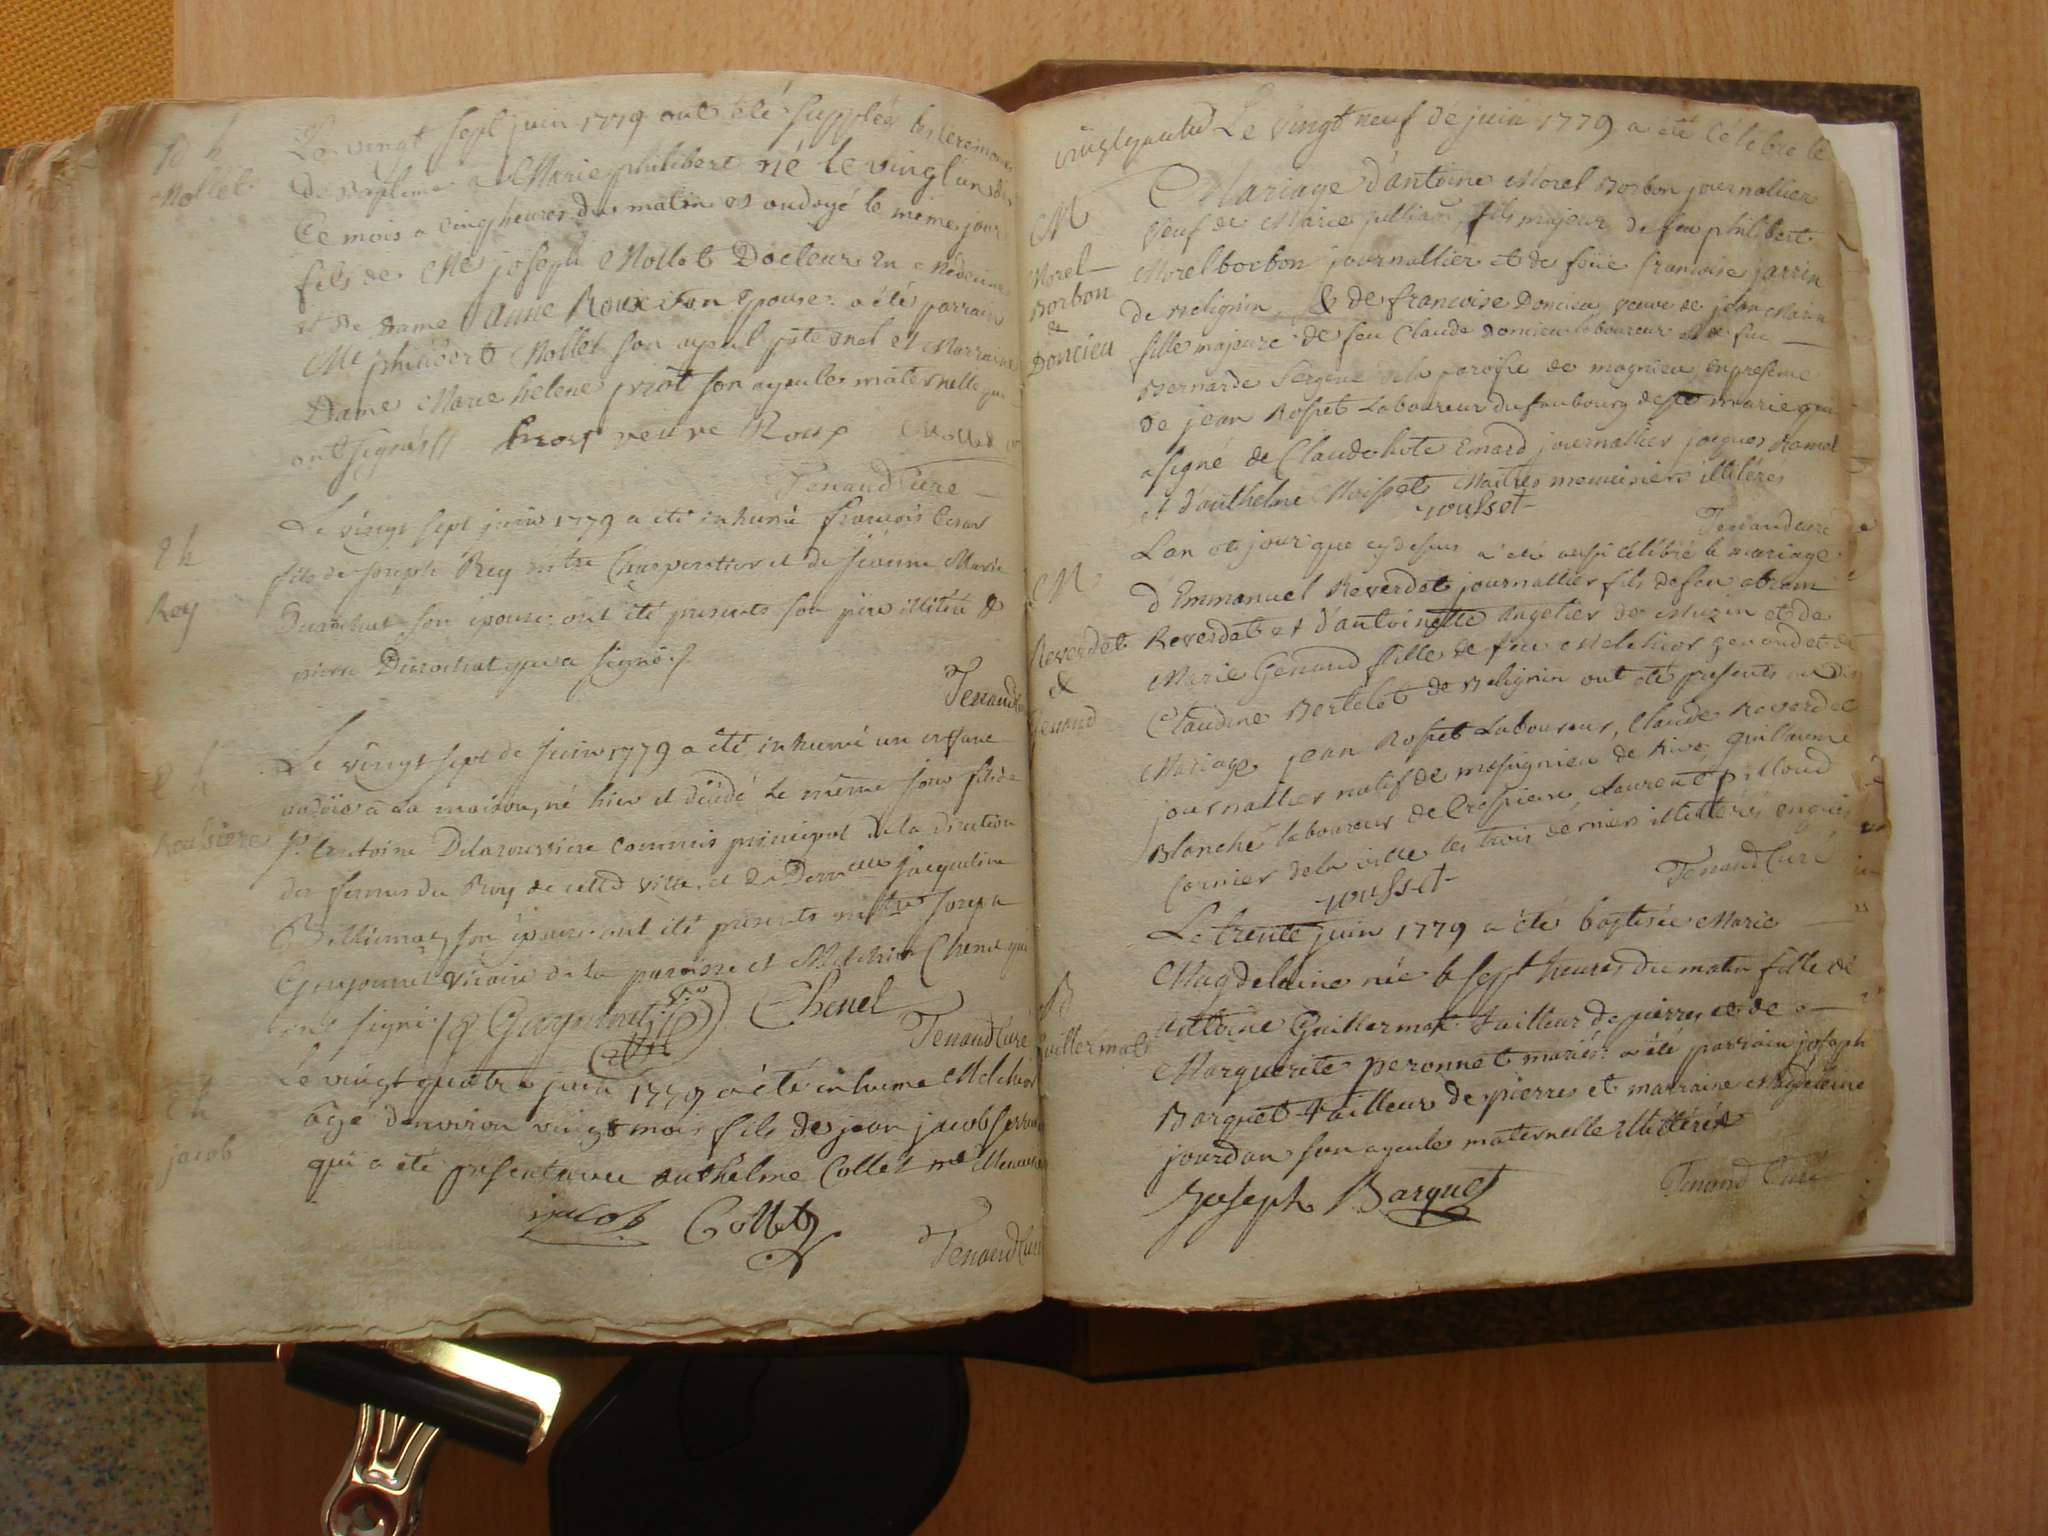 B h
Mollet
Le vingt sept juin 1779 ont été supplées les ceremonies
de Baptême a Marie philibert né le vingt un de
Ce mois a cinq heures du matin et ondoyé le même jour
fils de Me joseph Mollet Docteur en Médecine
et de Dame Anne Roux son Epouse: a été parrain
Me philibert Mollet son ayeul paternel et Marraine
Dame Marie helene priot son ayeule maternelle qui
ont signés // veuve Roux Mollet
Tenand Curé
Le vingt sept juin 1779 a été inhumé francois
E h
Rey
fils de joseph Rey mtre Charpentier et de jeanne Marie
Durochat son épouse: ont été presents son pere illitéré &
pierre Durochat qui a signé //
Tenand
Le vingt sept de juin 1779 a été inhumé un enfant
ondoïé a la maison, né hier et décédé le même jour fils de
Sr. Antoine Delaroussiere commis principal de la direction
des fermes du Roy de cette ville et de Demlle jacqueline
Billiemaz son épouse: ont été presents mtre joseph
Guyonnet vicaire de la paroisse et Melchior Chenel qui
ont signé // Guyonnet Chenel
Tenand Curé
Le vingt quatre juin 1779 a été inhumé Melchior
E h
jacob
agé d'environ vingt mois fils de jean jacob
qui a été present avec anthelme Collet me
jacob Collet
Tenand Curé
Le vingt neuf de juin 1779 a été Célébré le
M
Morel
Borbon
&
Doncieu
Mariage d'antoine Morel Borbon journallier
veuf de Marie jullian, fils majeur de feu philibert
Morel borbon journallier et de feüe francoise jarrin
de Belignin, & de francoise Doncieu veuve de jean Marin
fille majeure de feu Claude Doncieu laboureur et de feu
Bernarde Sergene de la paroisse de magnieu, en presence
de jean Rosset Laboureur du faubourg de ste marie qui
a signé de Claude Emard journallier jacques Ramel
et d'anthelme Maitres menuisiers illitérés
rousset
Tenand curé
L'an et jour que cy dessus a été aussi célébré le mariage
M
Reverdet
&
Genand
d'Emmanuel Reverdet journallier fils de feu abram
Reverdet et d'antoinette angelier de Muzin et de
Marie Genand fille de feu Melchior genand et de
Claudine Bertelet de Belignin ont été presents au dit
Mariage jean Rosset Laboureur, Claude Reverdet
journallier natif de massignieu de Rive guillaume
Blanche laboureur de Crespieu laurent pilloud
Cornier de la ville les trois derniers illittérés enquis
rousset
Tenand Curé
Le trente juin 1779 a été baptisée Marie
B
Guillermet
Magdelaine née a sept heures du matin fille de
antoine Guillermet tailleur de pierres et de
Marguerite peronnet mariés: a été parrain joseph
Barquet tailleur de pierres et marraine Magdelaine
jourdan son ayeule maternelle illittérée
joseph Barquet
Tenand Curé